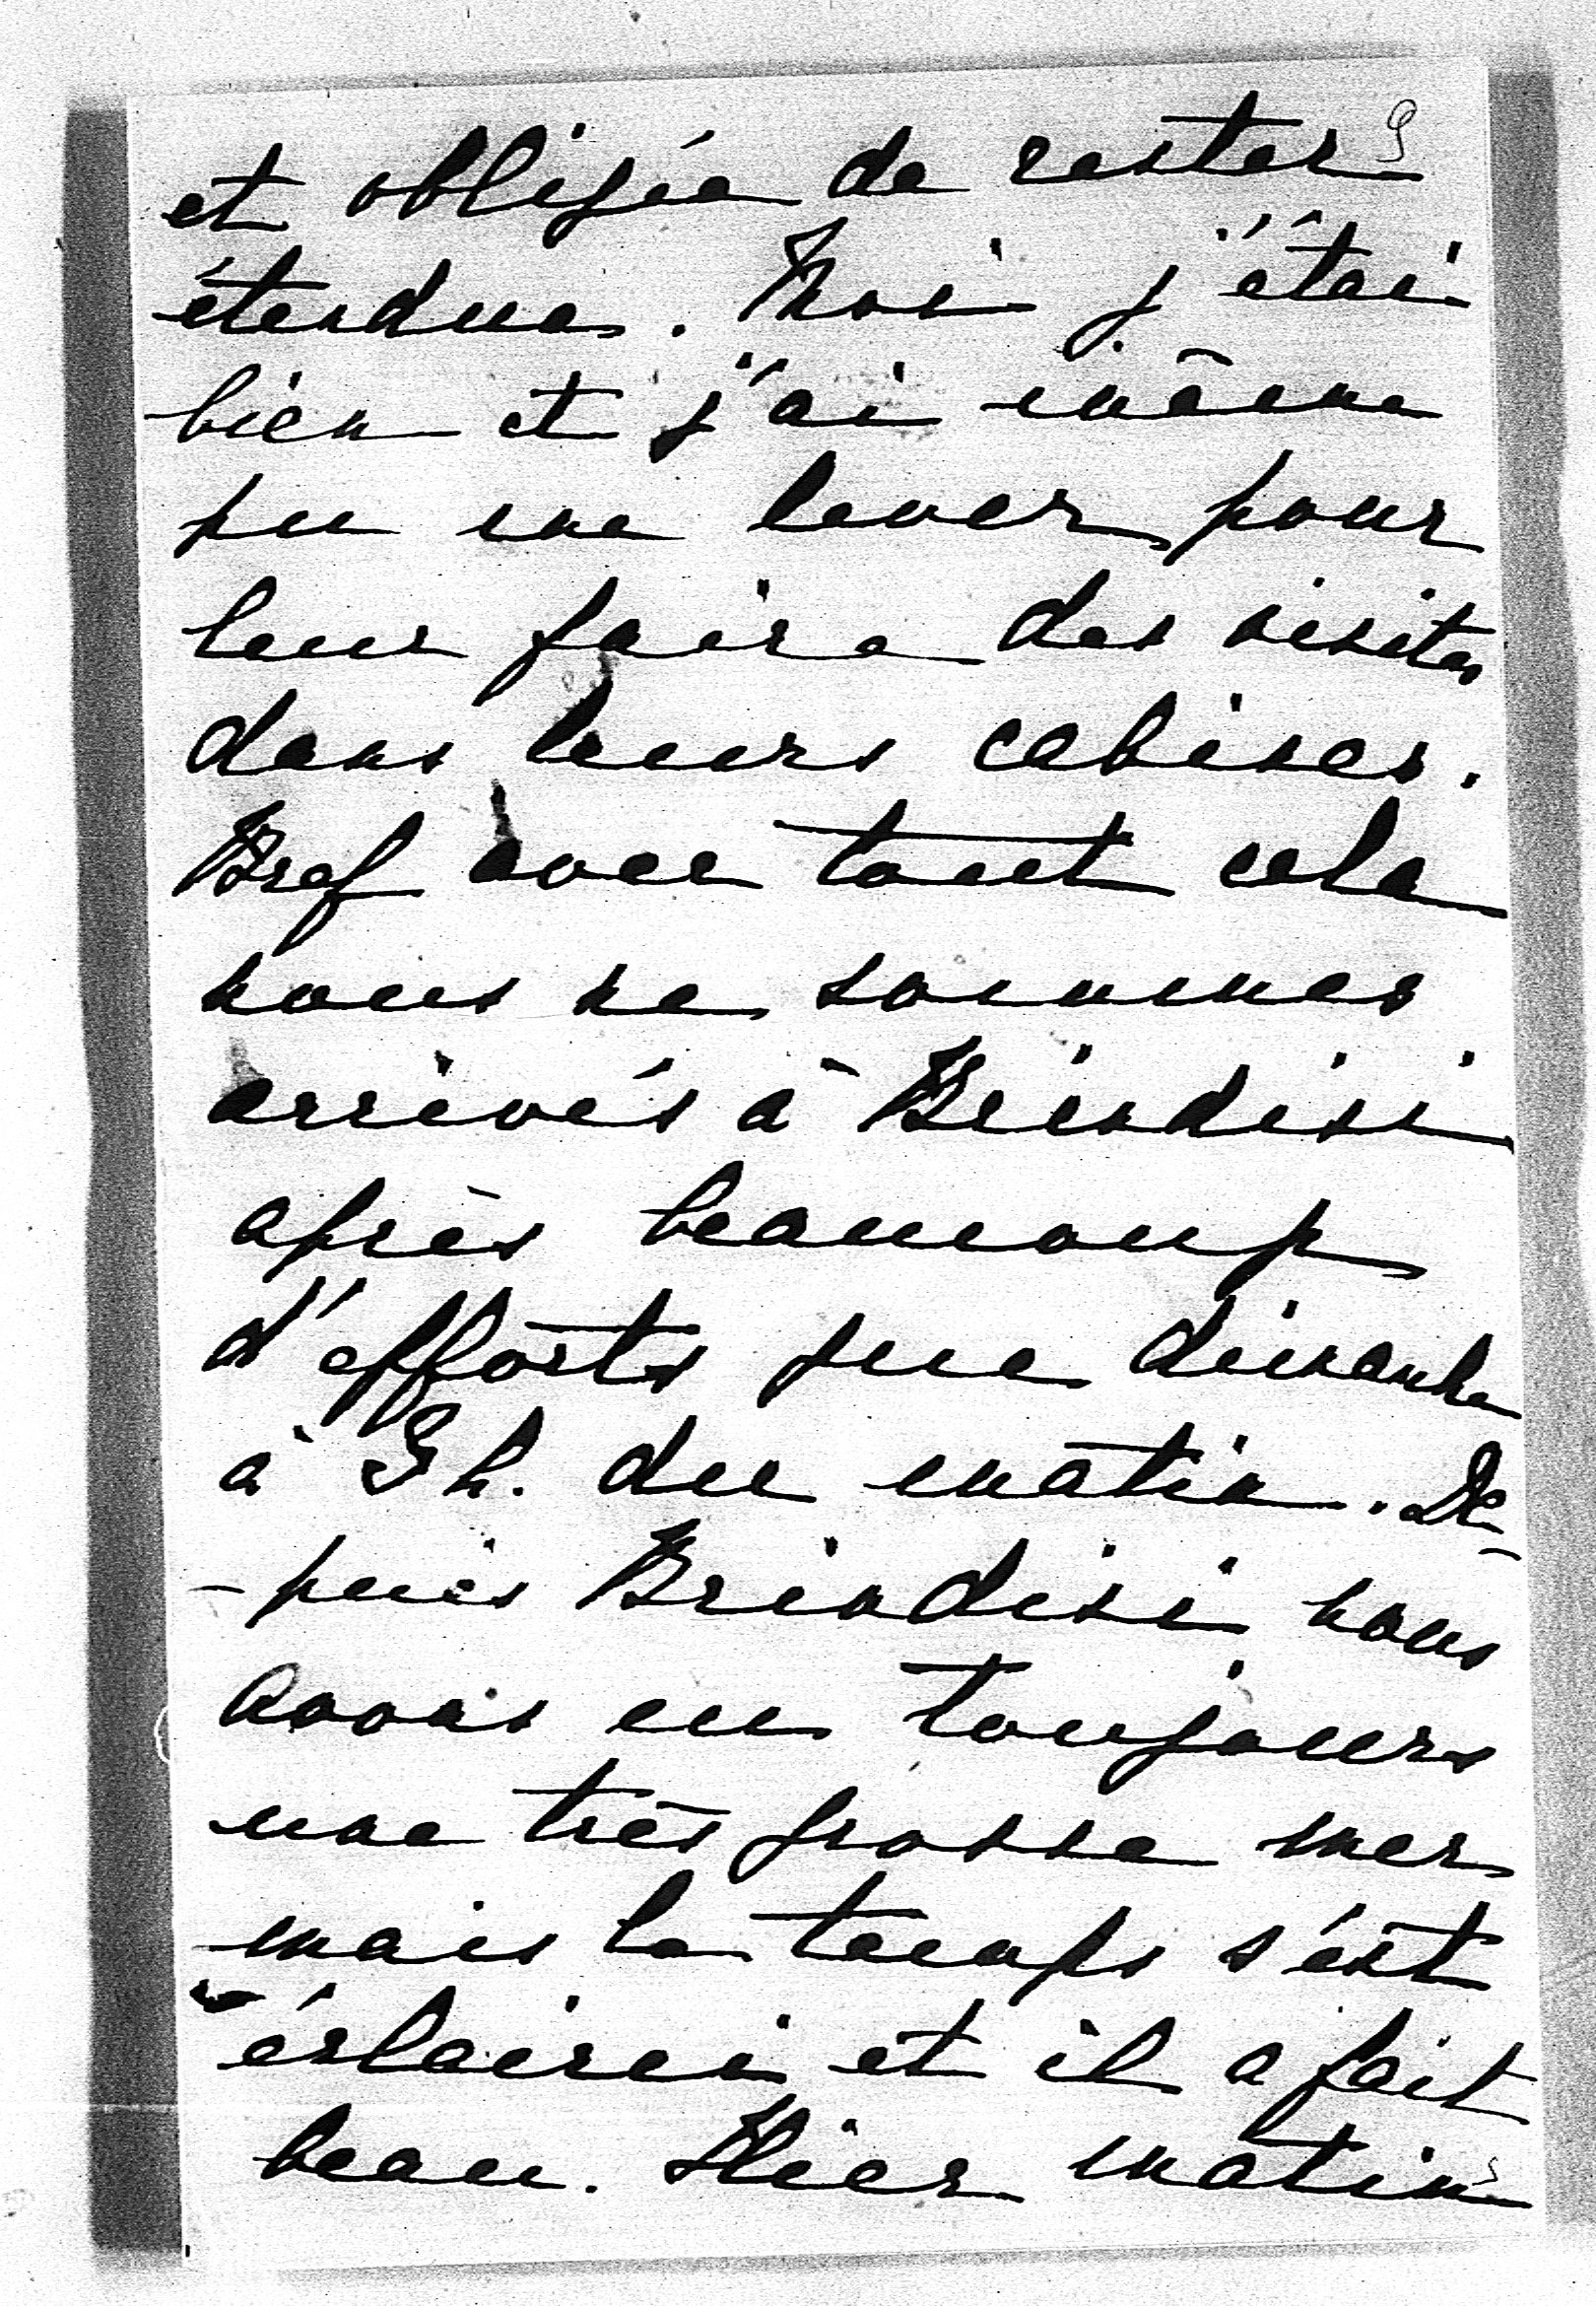 et obligée de rester
étendues. Moi j'étai
bien et j'ai même
pu me lever pour
leur faire des visites
dans leurs cabines.
Bref avec tout cela
nous ne sommes
arrivés à Brindisi
après beaucoup
d'efforts que dimanche
à 9 h. du matin. De-
-puis Brindisi nous
avons eu toujours
une très grosse mer
mais le temps s'est
éclairci et il a fait
beau. Hier matin